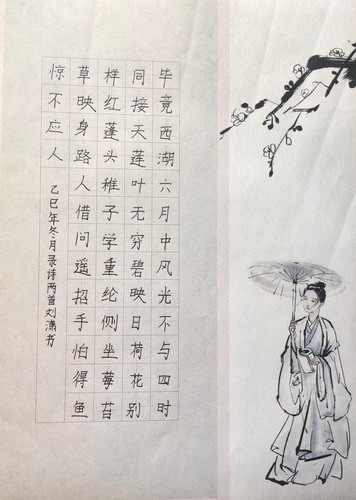 毕竟西湖六月中风光不与四时
同接天莲叶无穷碧映日荷花别
样红蓬头稚子学垂纶侧坐莓苔
草映身路人借问遥招手怕得鱼
惊不应人
乙巳年冬月录诗两首刘潇书